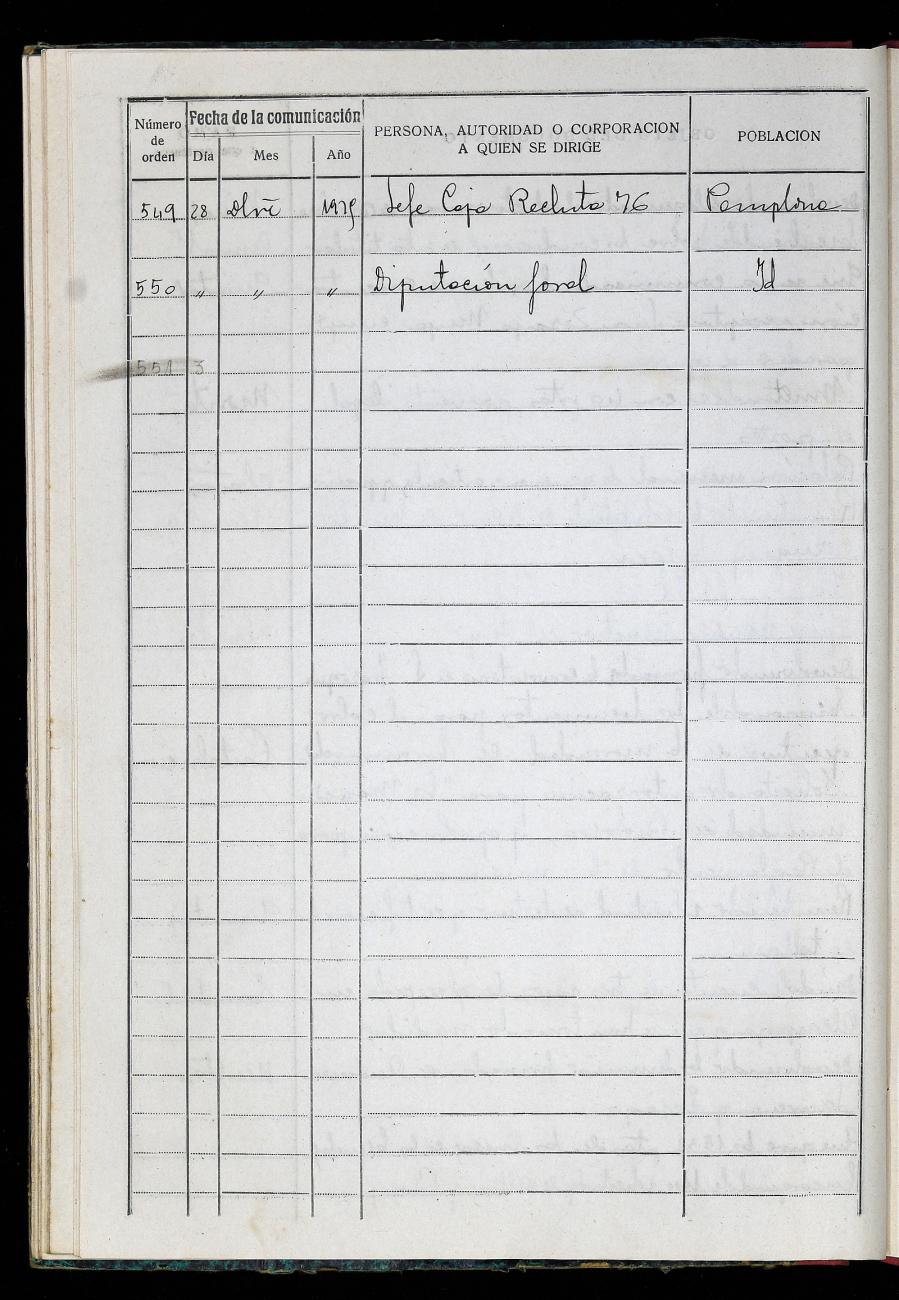 Número de orden
Fecha de la comunicación
Día Mes Año
PERSONA, AUTORIDAD O CORPORACION
A QUIEN SE DIRIGE
POBLACION
549 28 Dbre 1975 Jefe Caja Recluta 76 Pamplona
550 " " " Diputación foral Id
551 3